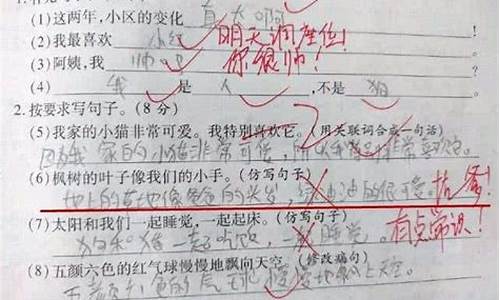 (1)这两年,小区的变化 真大啊
(2)我最喜欢 小红 明天调座位!
(3)阿姨,我 帅吧 你很帅!
(4) 我 是 人 ,不是 狗
2.按要求写句子。(8 分)
(5)我家的小猫非常可爱。我特别喜欢它。(用关联词合成一句话)
因为我家的小猫非常可爱,所以我非常喜欢它。
(6)枫树的叶子像我们的小手。(仿写句子)
地上的草地像爸爸的头发,绿油油的很可爱。 抗爹!
(7)太阳和我们一起睡觉,一起起床。(仿写句子)
狗和猪一起吃饭,一起睡觉。 有点常识!
(8)五颜六色的红气球慢慢地飘向天空。(修改病句)
五颜六色的气球慢慢地飘上天空。